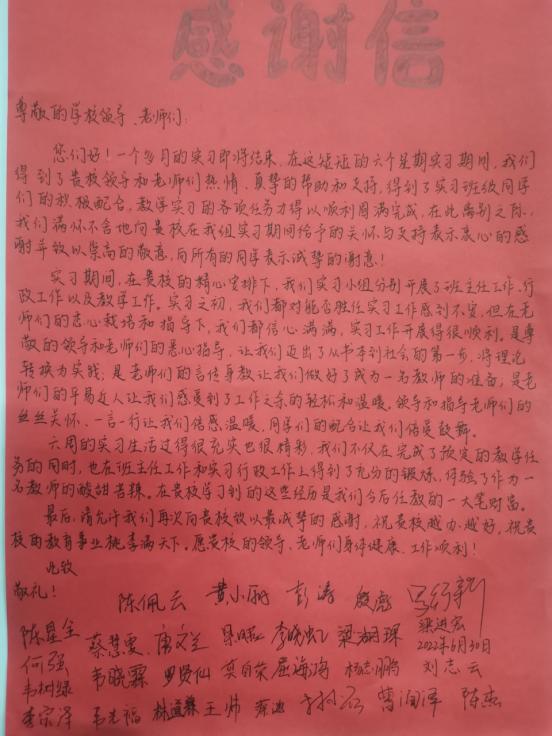 感谢信
尊敬的学校领导、老师们:
您们好!一个多月的实习即将结束,在这短短的六个星期实习期间,我们
得到了贵校领导和老师们热情、真挚的帮助和支持,得到了实习班级同学
们的积极配合,教学实习的各项任务才得以顺利圆满完成,在此离别之际,
我们满怀不舍地向贵校在我组实习期间给予的关怀与支持表示衷心的感
谢并致以崇高的敬意,向所有的同学表示诚挚的谢意!
实习期间,在贵校的精心安排下,我们实习小组分别开展了班主任工作、行
政工作以及教学工作。实习之初,我们都对能否胜任实习工作感到不安,但在老
师们的悉心栽培和指导下,我们都信心满满,实习工作开展得很顺利。是尊
敬的领导和老师们的悉心指导,让我们迈出了从书本到社会的第一步,将理论
转换为实践,是老师们的言传身教让我们做好了成为一名教师的准备,是老
师们的平易近人让我们感受到了工作之余的轻松和温暖。领导和指导老师们的
丝丝关怀、一言一行让我们倍感温暖,同学们的配合让我们倍受鼓舞。
六周的实习生活过得很充实也很精彩,我们不仅在完成了预定的教学任
务的同时,也在班主任工作和实习行政工作上得到了充分的锻炼,体验了作为一
名教师的酸甜苦辣。在贵校学习到的这些经历是我们今后任教的一大笔财富。
最后,请允许我们再次向贵校致以最诚挚的感谢,祝贵校越办越好,祝贵
校的教育事业桃李满天下。愿贵校的领导、老师们身体健康、工作顺利!
此致
敬礼!
陈佩云 黄小丽 彭涛
陈星全 蔡慧夏 唐文兰 李晓虹 梁湖琛 梁进宏
2022年6月30日
何强 韦晓霖 罗贤仙 莫自荣 屈海海 杨志鹏 刘志云
韦树绿
李宗泽 韦光福 林道森 王帅 曹润泽 陈杰